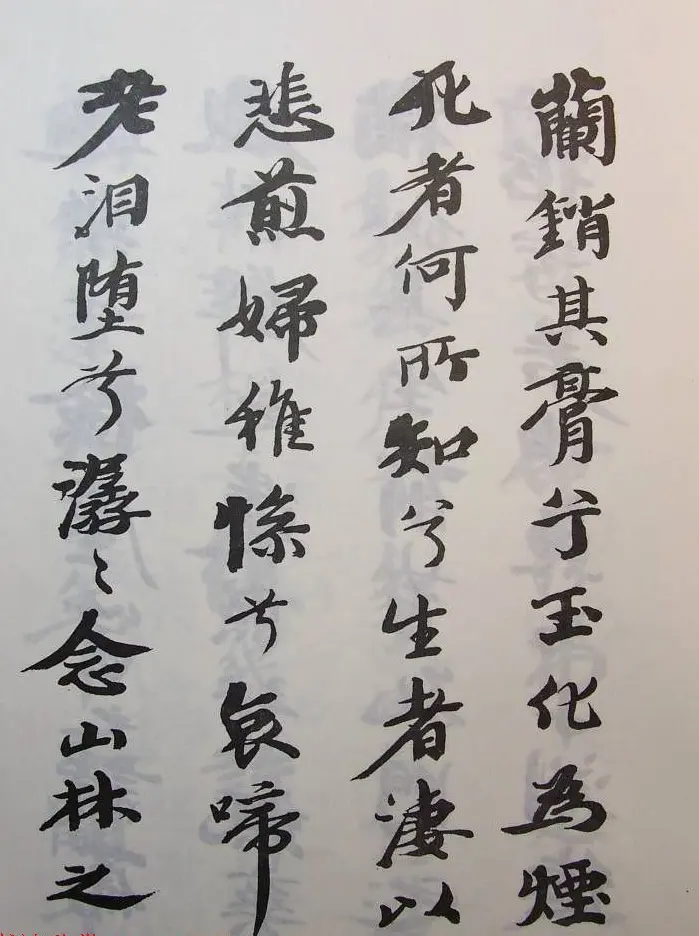 蘭銷其膏兮玉化為煙
死者何所知兮生者淒以
悲煎婦稚兮哀啼
老泪堕兮潺〻念山林之